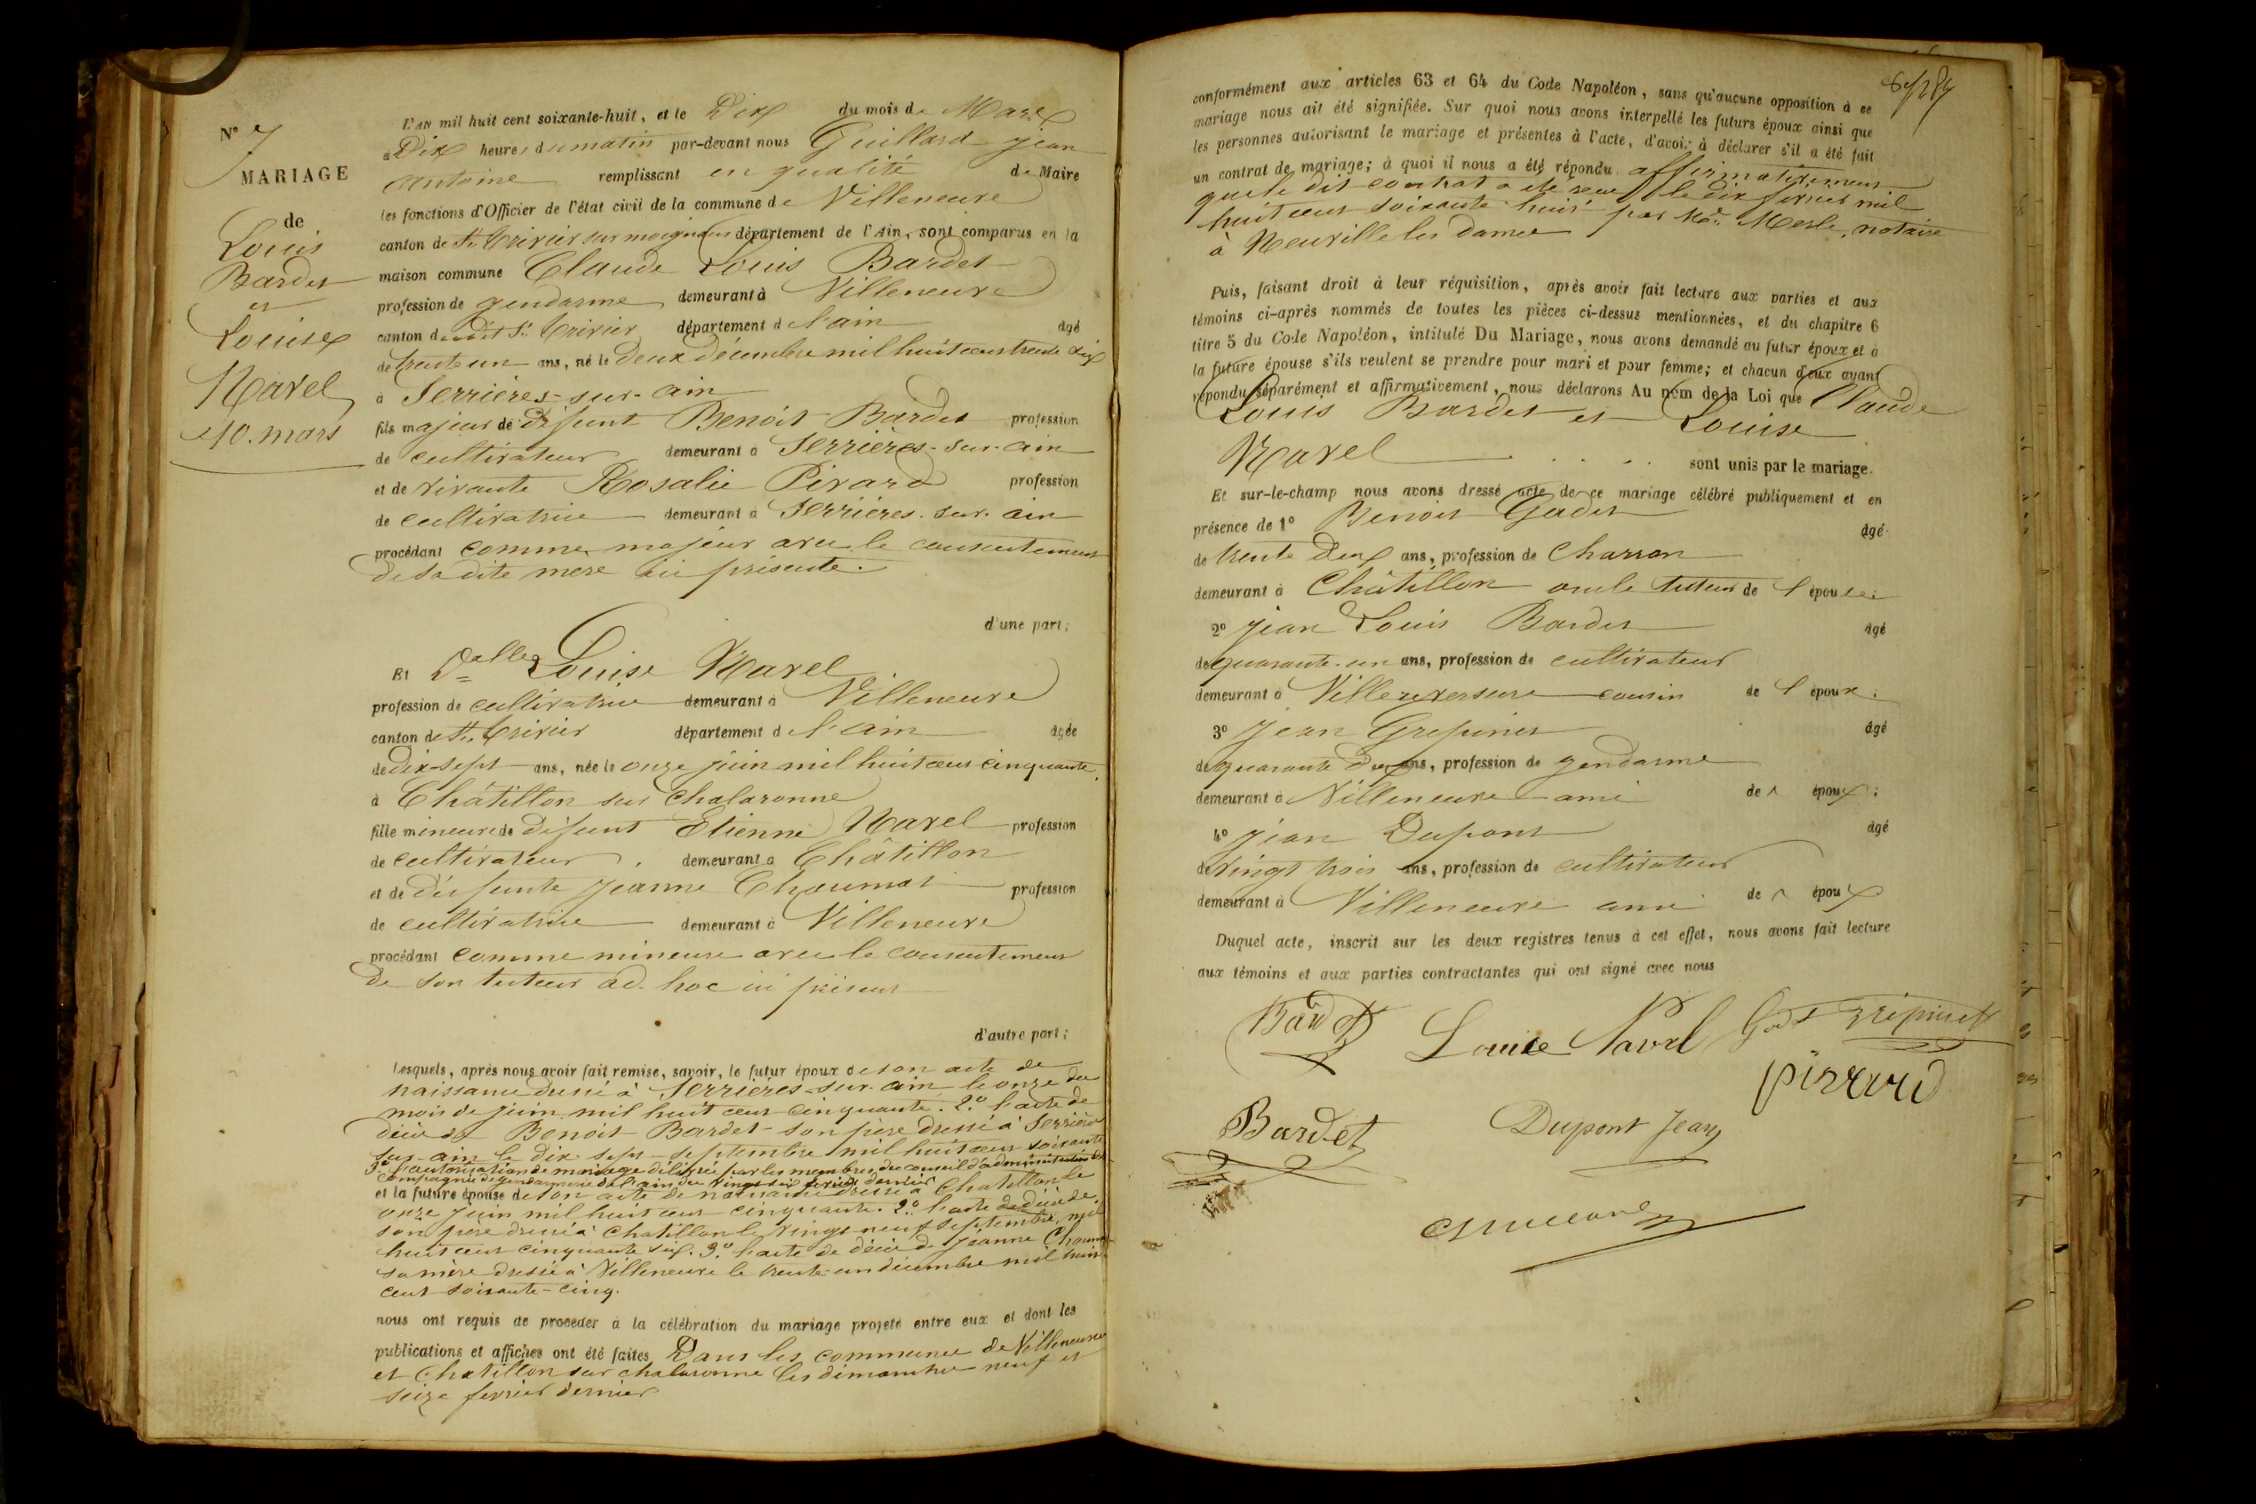 N° 7
MARIAGE
de
Louis
Bardet
et
Louise
Navel
le 10. mars
L'AN mil huit cent soixante-huit, et le Dix du mois de Mars
à Dix heures du matin par-devant nous Guillard jean
antoine remplissant en qualité de Maire
les fonctions d'Officier de l'état civil de la commune de Villeneuve
canton de St. Trivier sur moignans département de l'Ain, sont comparus en la
maison commune Claude Louis Bardet
profession de gendarme demeurant à Villeneuve
canton dudit St. Trivier département de l'ain âgé
de trente un ans, né le deux décembre mil huit cent trente six
à Serrières-sur-ain
fils majeur de défunt Benoit Bardet profession
de cultivateur demeurant à Serrières-sur-ain
et de vivante Rosalie Pirard profession
de cultivatrice demeurant à Serrières-sur-ain
procédant comme majeur avec le consentement
de sa dite mère ici présente.
d'une part;
Et Dalle Louise Navel
profession de cultivatrice demeurant à Villeneuve
canton de St. Trivier département de l'ain âgée
de dix-sept ans, née le onze juin mil huit cent cinquante
à Châtillon sur chalaronne
fille mineure de défunt Etienne Navel profession
de cultivateur demeurant à Châtillon
et de défunte jeanne Chaumat profession
de cultivatrice demeurant à Villeneuve
procédant comme mineure avec le consentement
de son tuteur ad. hoc ici présent
d'autre part;
Lesquels, après nous avoir fait remise, savoir, le futur époux de son acte de
naissance dressé à Serrières-sur-ain le onze du
mois de juin mil huit cent cinquante. 2° l'acte de
décès de Benoit Bardet son père dressé à Serrières
sur-ain le dix sept septembre mil huit cent soixante
3° l'autorisation de mariage délivrée par les membres du conseil d'administration de la
compagnie de gendarmerie de l'ain du vingt six février dernier
et la future épouse de son acte de naissance dressé à Chatillon le
onze juin mil huit cent cinquante. 2° l'acte de décès de
son père dressé à Chatillon le vingt neuf septembre mil
huit cent cinquante six. 3° l'acte de décès de jeanne Chaumat
sa mère dressé à Villeneuve le trente-un décembre mil huit
cent soixante-cinq.
nous ont requis de procéder à la célébration du mariage projeté entre eux et dont les
publications et affiches ont été faites Dans les communes de Villeneuve
et Chatillon sur chalaronne les dimanches neuf et
seize fevrier dernier
conformément aux articles 63 et 64 du Code Napoléon, sans qu'aucune opposition à ce
mariage nous ait été signifiée. Sur quoi nous avons interpellé les futurs époux ainsi que
les personnes autorisant le mariage et présentes à l'acte, d'avoir à déclarer s'il a été fait
un contrat de mariage; à quoi il nous a été répondu affirmativement
que le dit contrat a été reçu le dix fevrier mil
huit cent soixante huit par Me. Merle, notaire
à Neuville les dames
Puis, faisant droit à leur réquisition, après avoir fait lecture aux parties et aux
témoins ci-après nommés de toutes les pièces ci-dessus mentionnées, et du chapitre 6
titre 5 du Code Napoléon, intitulé Du Mariage, nous avons demandé au futur époux et à
la future épouse s'ils veulent se prendre pour mari et pour femme; et chacun d'eux ayant
répondu séparément et affirmativement, nous déclarons Au nom de la Loi que Claude
Louis Bardet et Louise
Navel sont unis par le mariage.
Et sur-le-champ nous avons dressé acte de ce mariage célébré publiquement et en
présence de 1° Benoit Gadet âgé
de trente deux ans, profession de Charron
demeurant à Châtillon oncle tuteur de l'épouse
2° jean Louis Bardet âgé
de quarante-un ans, profession de cultivateur
demeurant à Villereversure cousin de l'époux.
3° jean Grepinet âgé
de quarante deux ans, profession de gendarme
demeurant à Villeneuve ami de l'époux;
4° jean Dupont âgé
de vingt trois ans, profession de cultivateur
demeurant à Villeneuve ami de l'époux
Duquel acte, inscrit sur les deux registres tenus à cet effet, nous avons fait lecture
aux témoins et aux parties contractantes qui ont signé avec nous
Bardet Louise Navel Gadet Grépinet
pirrard
Bardet Dupont Jean